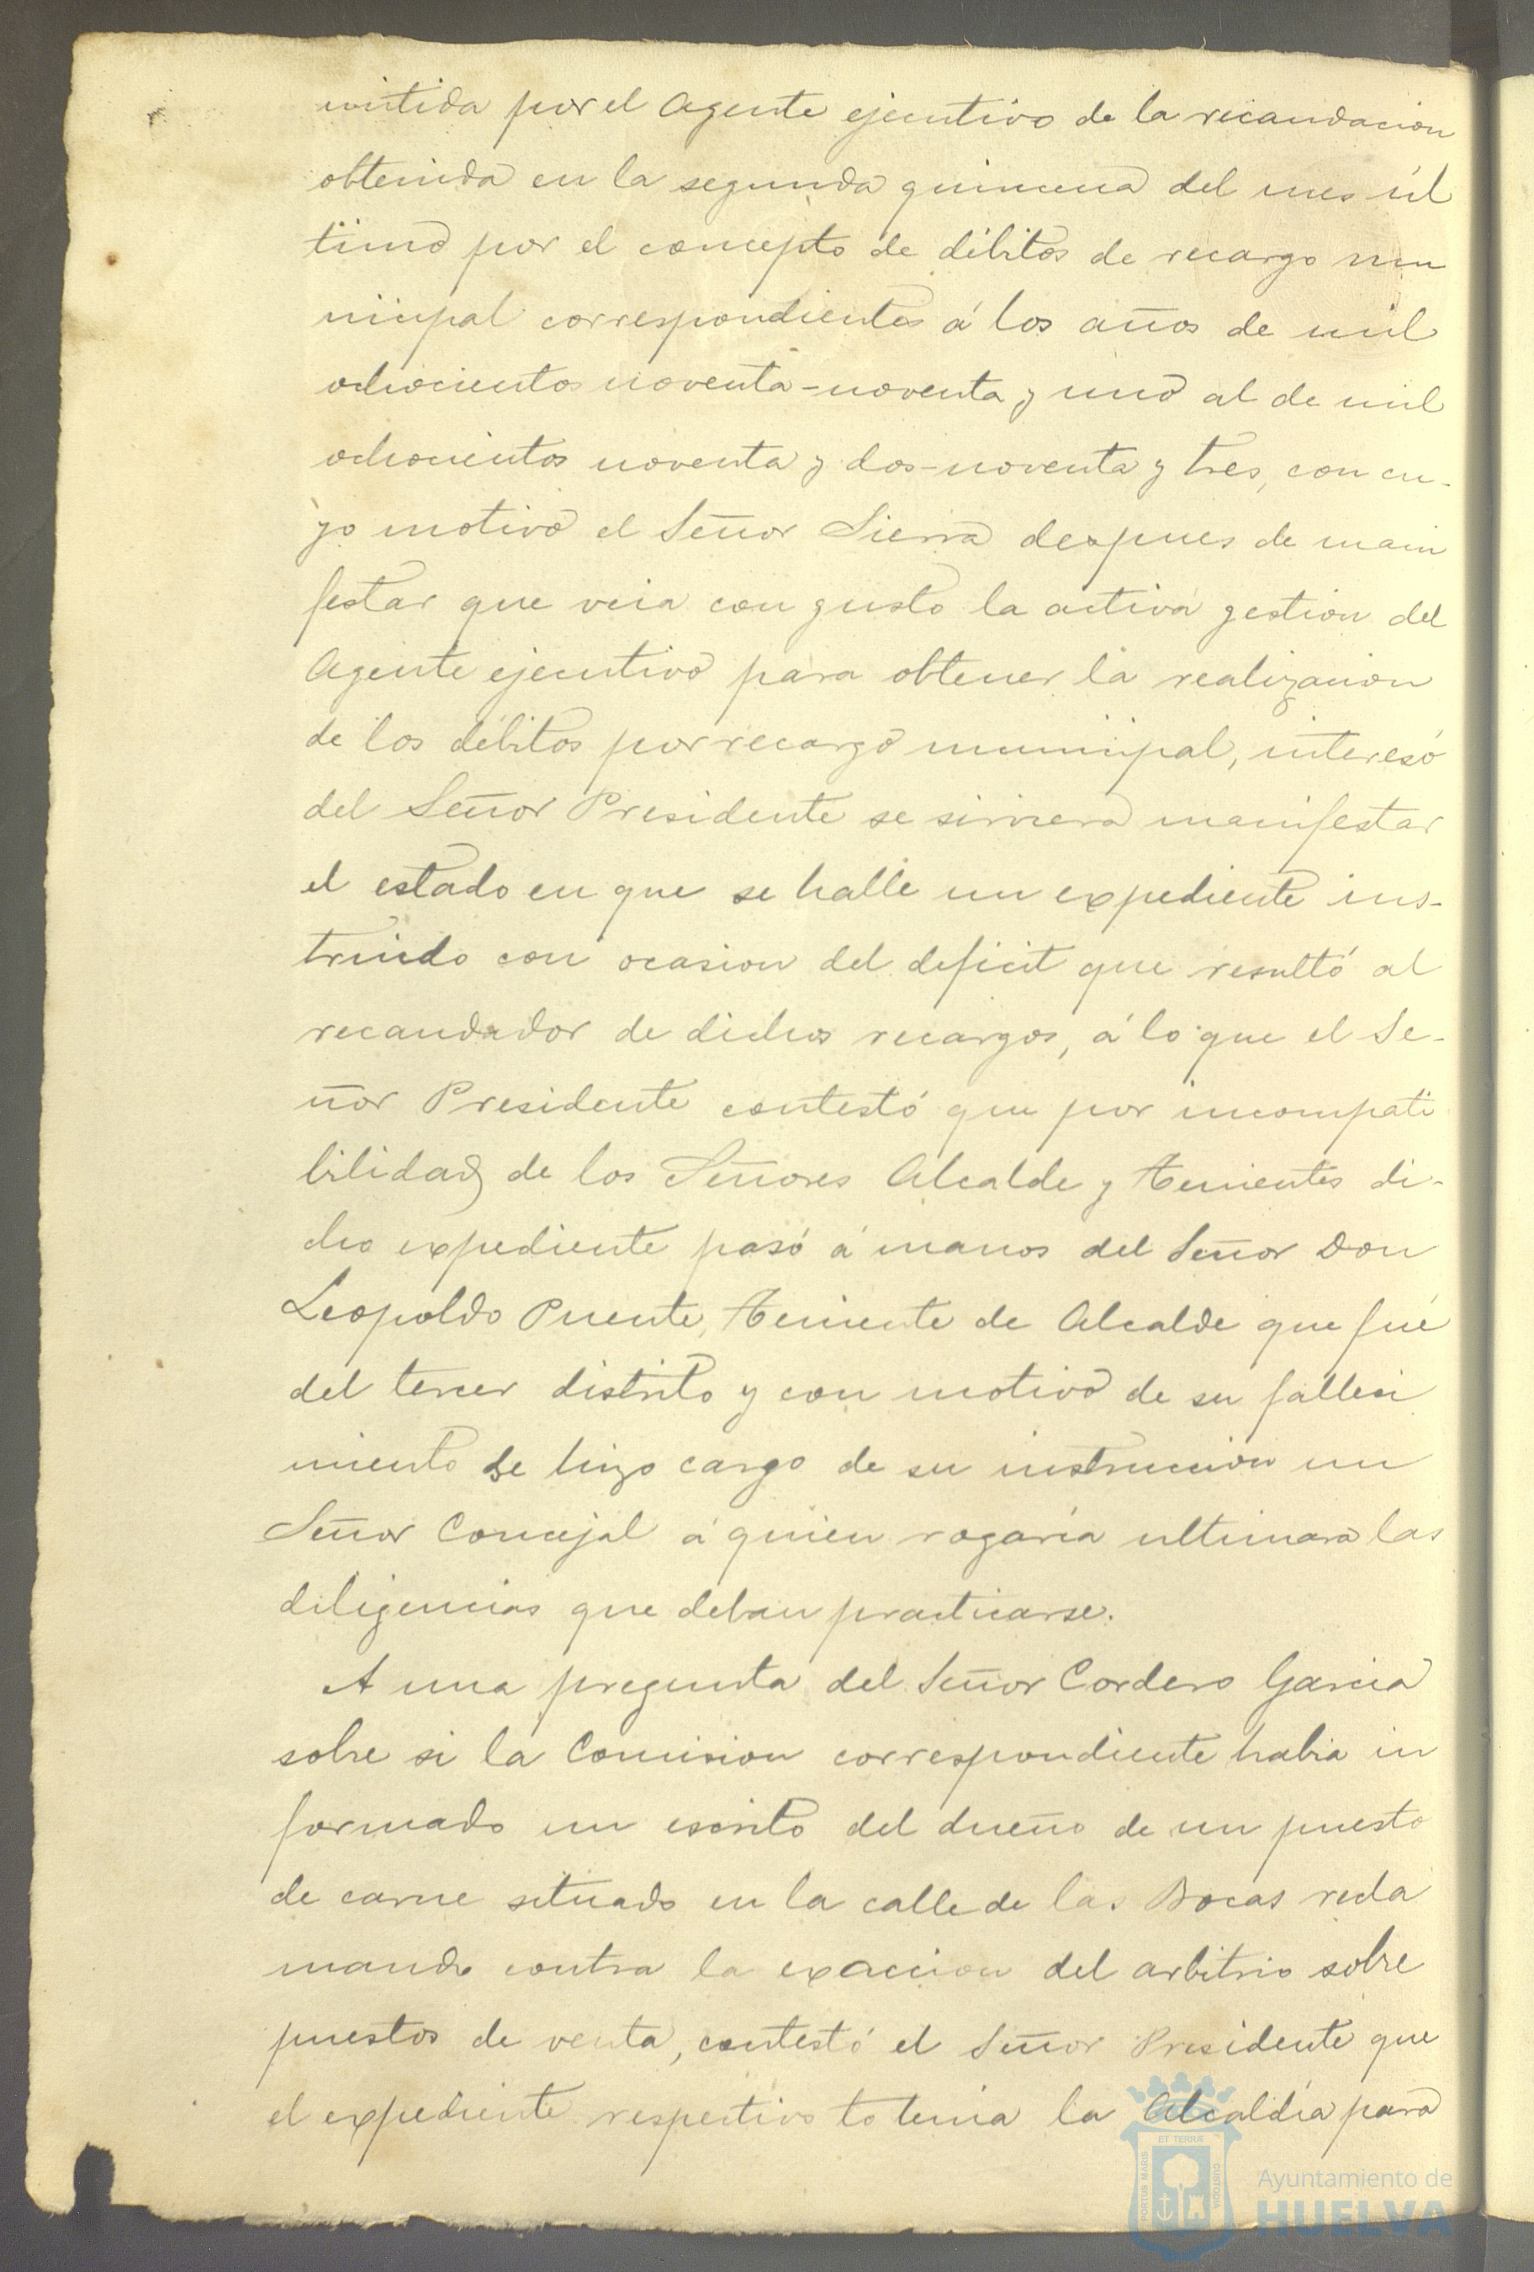 mitida por el Agente ejecutivo de la recaudacion
obtenida en la segunda quincena del mes úl
timo por el concepto de débitos de recargo mu
nicipal correspondientes á los años de mil
ochocientos noventa-noventa y uno al de mil
ochocientos noventa y dos-noventa y tres, con cu-
yo motivo el Señor Sierra despues de mani
festar que veia con gusto la activa gestion del
Agente ejecutivo para obtener la realizacion
de los débitos por recargo municipal, interesó
del Señor Presidente se sirviera manifestar
el estado en que se halle un expediente ins-
truido con ocasion del deficit que resultó al
recaudador de dichos recargos, á lo que el Se-
ñor Presidente contestó que por incompati
bilidad de los Señores Alcalde y Tenientes di-
cho expediente pasó á manos del Señor Don
Leopoldo Puente, Teniente de Alcalde que fué
del tercer distrito y con motivo de su falleci
miento se hizo cargo de su instruccion un
Señor Concejal á quien rogaría ultimara las
diligencias que deban practicarse.
A una pregunta del Señor Cordero Garcia
sobre si la Comision correspondiente habia in
formado un escrito del dueño de un puesto
de carne situado en la calle de las Bocas recla
mando contra la exaccion del arbitrio sobre
puestos de venta, contestó el Señor Presidente que
el expediente respectivo lo tenia la Alcaldía para
ET TERRÆ
PORTUS MARIS
CUSTODIA
Ayuntamiento de
HUELVA